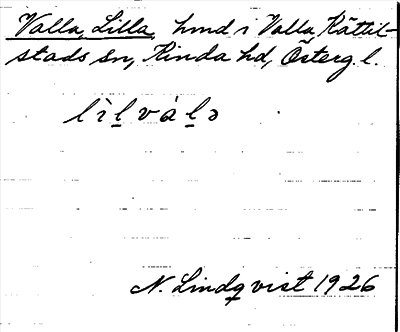 Valla, Lilla, hmd i Valla, Kättil-
stads sn, Kinda hd, Österg. l.
lìl̠vàl̠ə
N. Lindqvist 1926